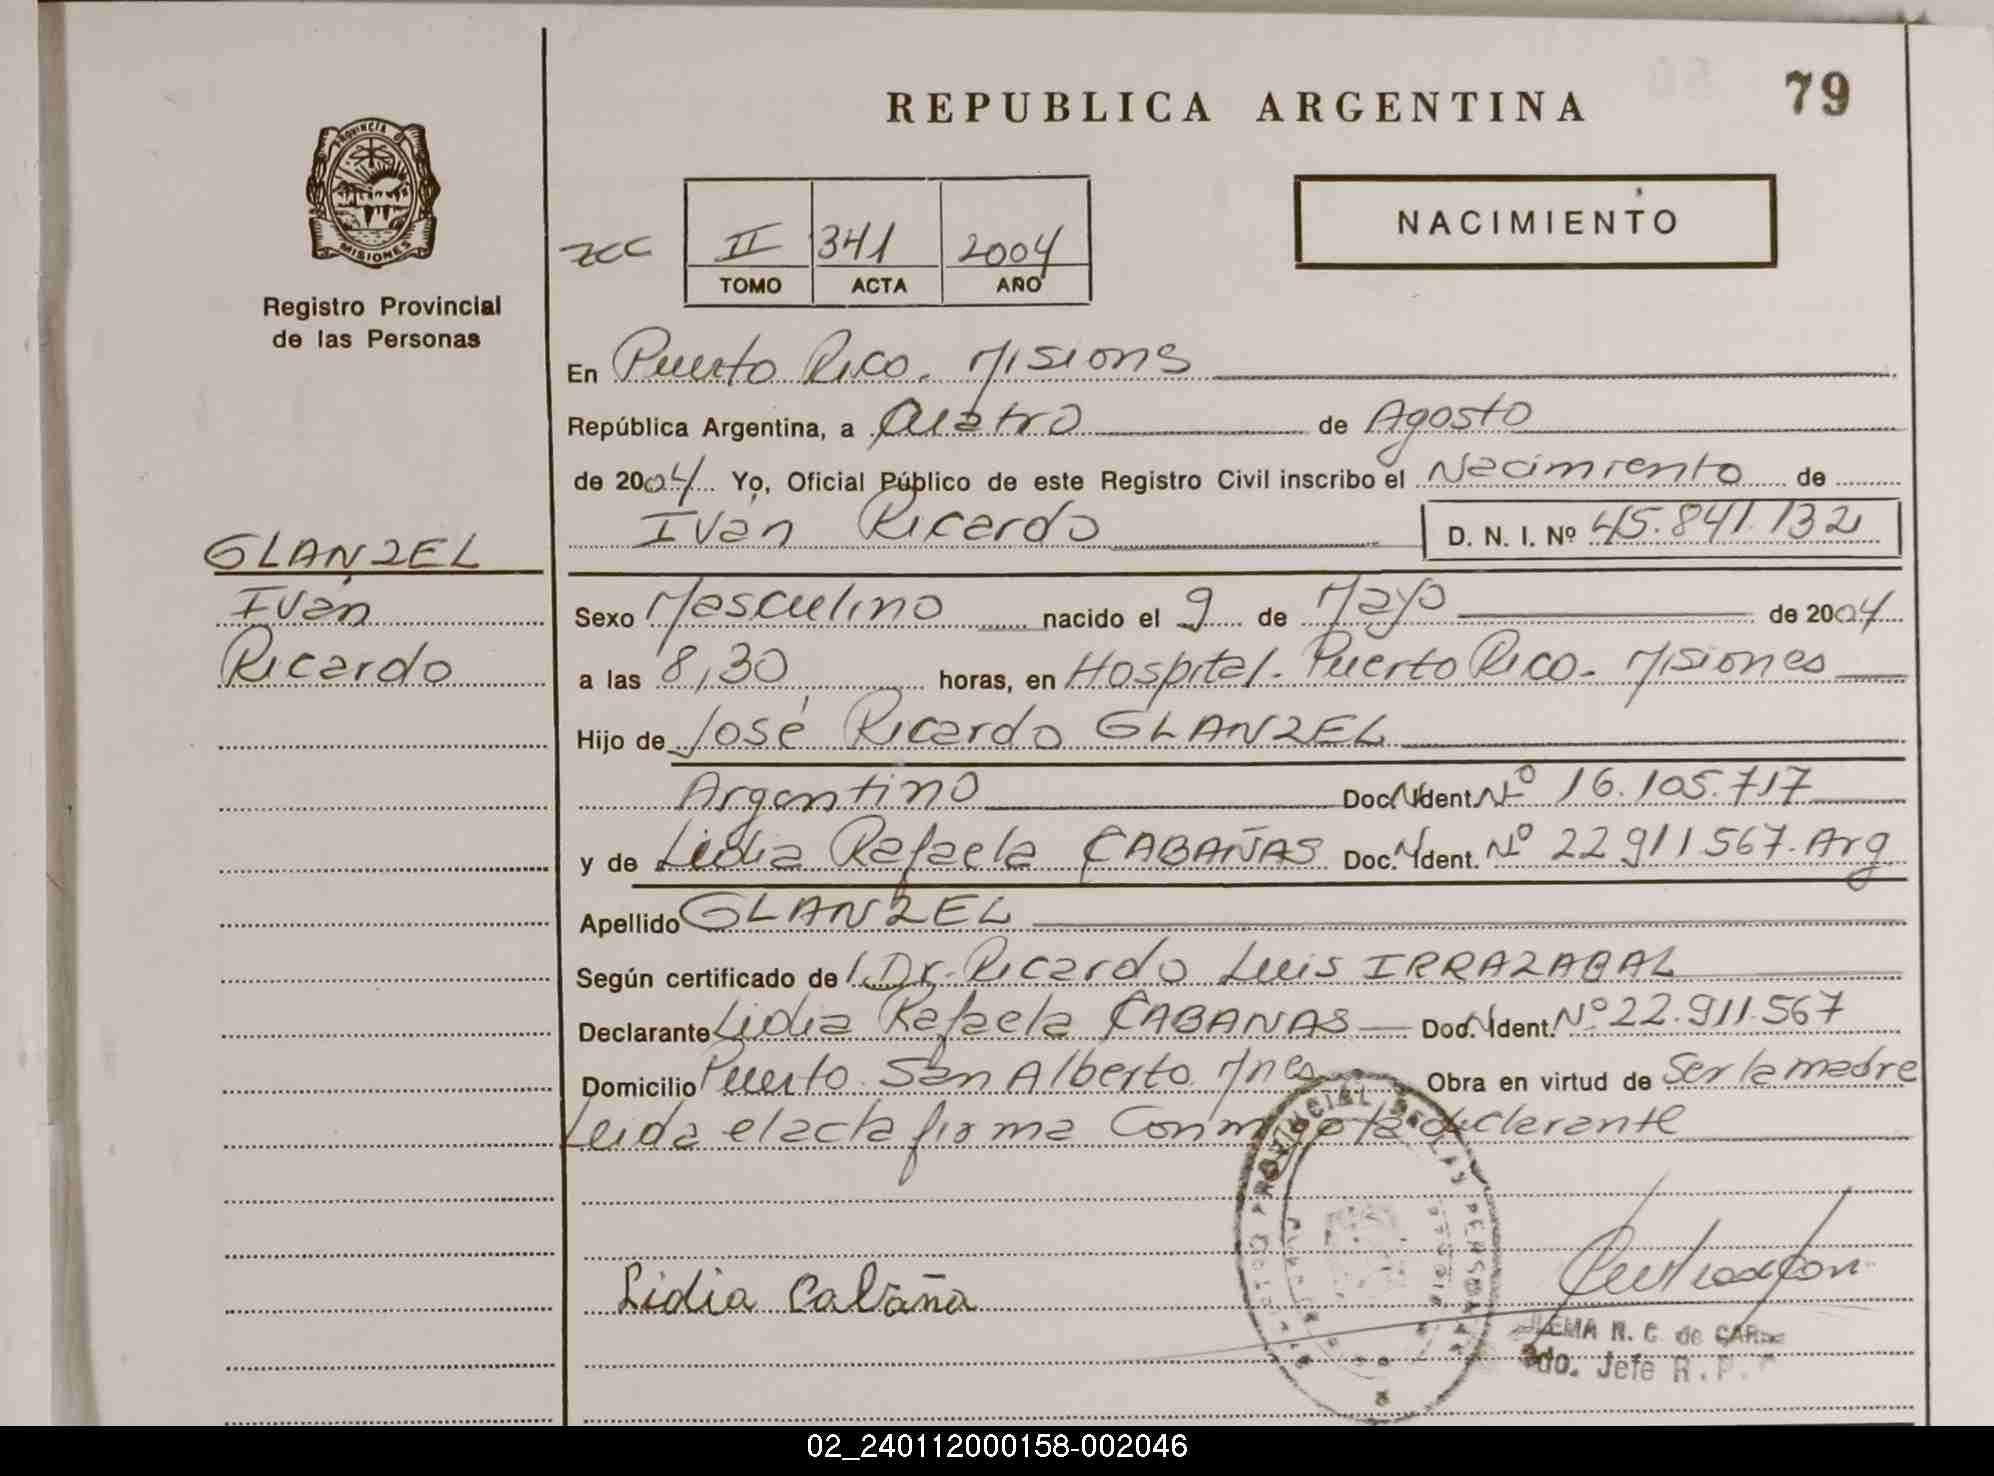 REPUBLICA ARGENTINA
79
PROVINCIA D
MISIONES
Registro Provincial
de las Personas
NACIMIENTO
II 341 2004
TOMO ACTA AÑO
En Puerto Rico. Misions
República Argentina, a Cuatro de Agosto
de 2004 Yo, Oficial Público de este Registro Civil inscribo el Nacimiento de
Iván Ricardo D. N. I. Nº 45.841.132
GLANZEL
Iván
Ricardo
Sexo Masculino nacido el 9 de Mayo de 2004
a las 8,30 horas, en Hospital. Puerto Rico. Misiones
Hijo de José Ricardo GLANZEL
Argentino Doc. Ident. Nº 16.105.717
y de Lidia Rafaela CABAÑAS Doc. Ident. Nº 22911567. Arg
Apellido GLANZEL
Según certificado de Dr. Ricardo Luis IRRAZABAL
Declarante Lidia Rafaela CABANAS Doc. Ident. Nº 22.911.567
Domicilio Puerto San Alberto Mnes Obra en virtud de Ser la madre
Leida el acta firma Conmigo la declarante
PROVINCIAL DE LAS PERSONAS
Lidia Cabaña
N. C. de
2do. Jefe R. P.
02_240112000158-002046